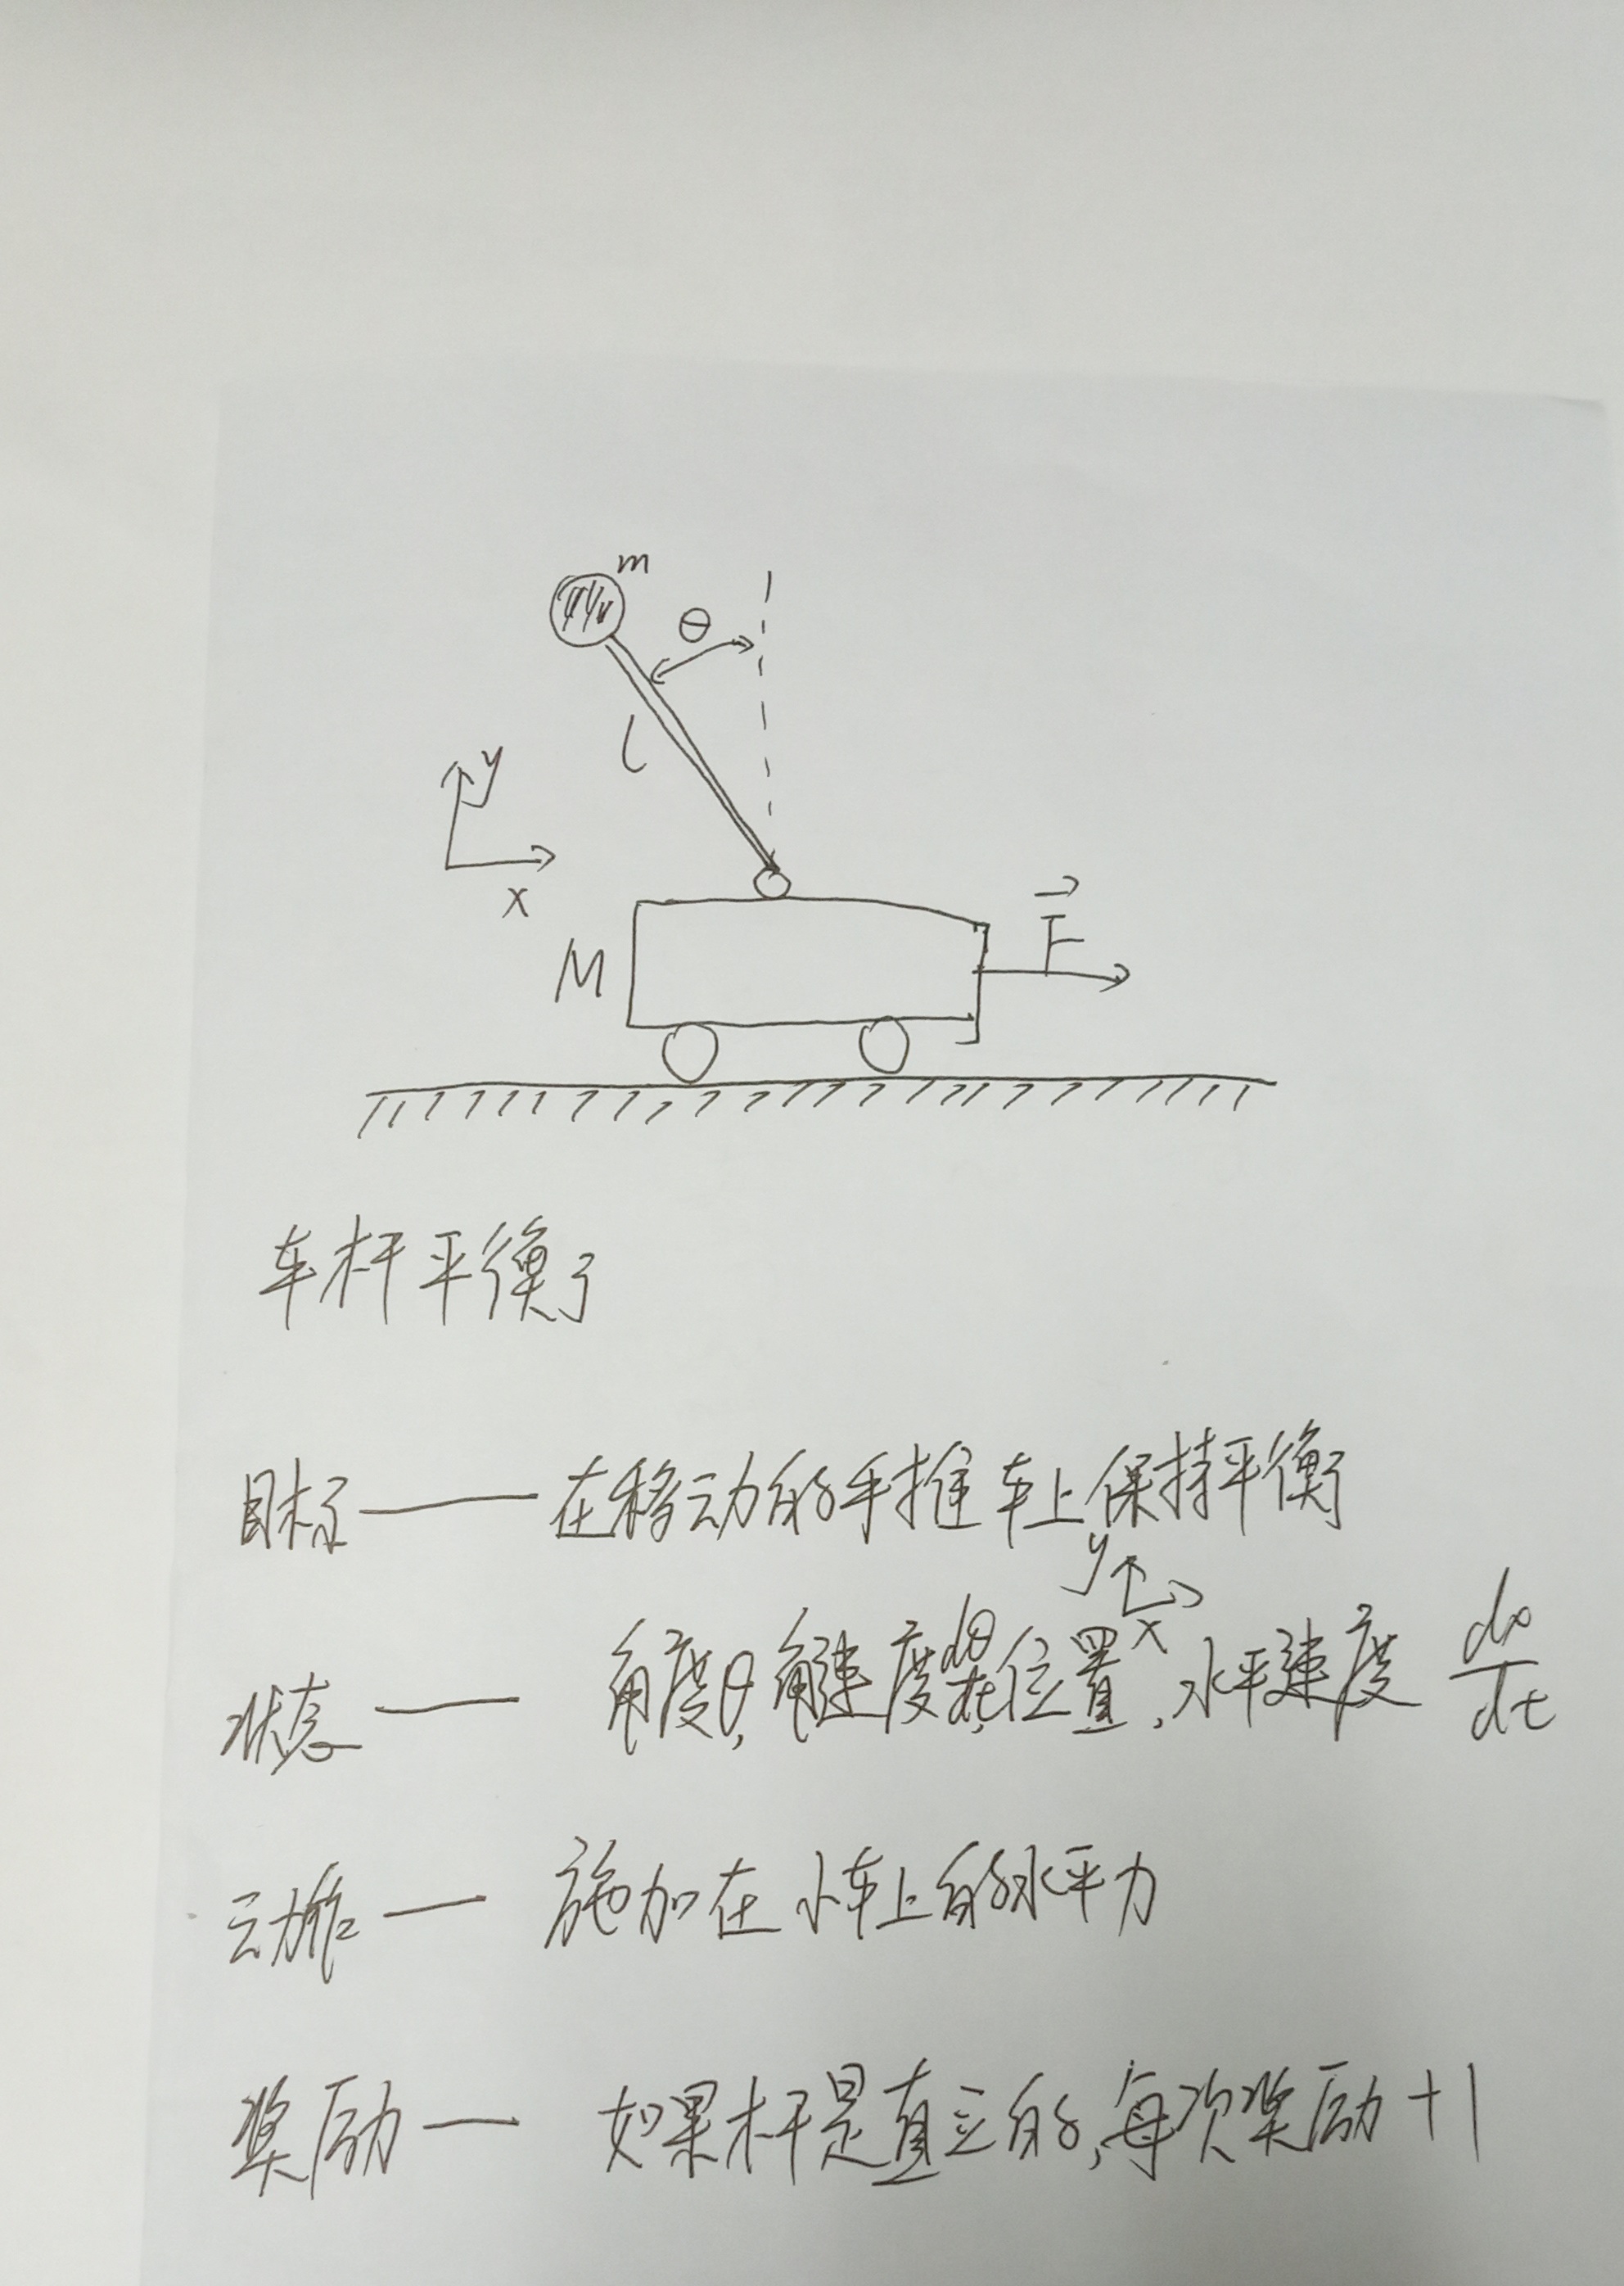 m
θ
l
y
x
M
F
车杆平衡了
目标——在移动的手推车上保持平衡
y
x
状态—— 角度θ,角速度dθ/dt,位置,水平速度 dx/dt
动作— 施加在小车上的水平力
奖励— 如果杆是直立的,每次奖励+1